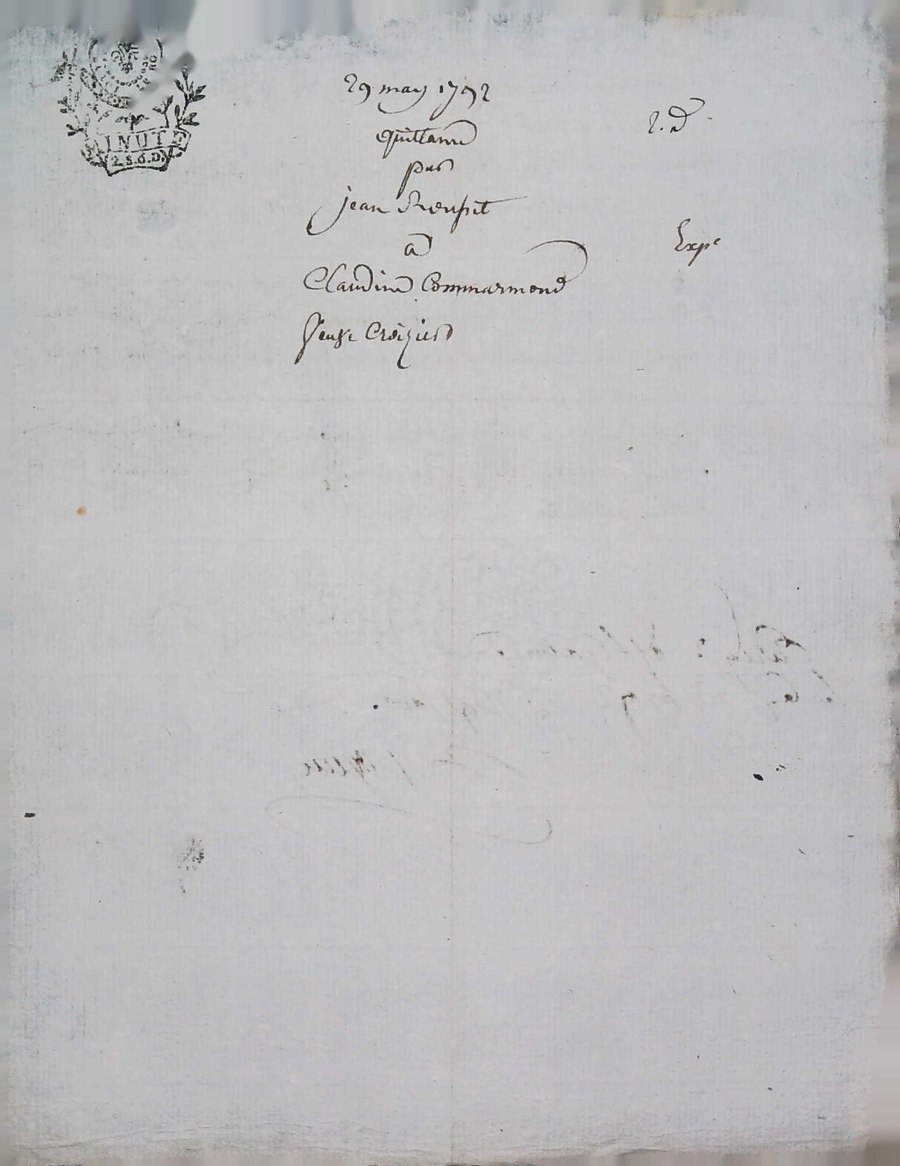 MINUTE
2.S.6.D.
29 may 1792
quittance
par
jean
a
Claudine Commarmond
Veuve Croizier
2. d
Expe